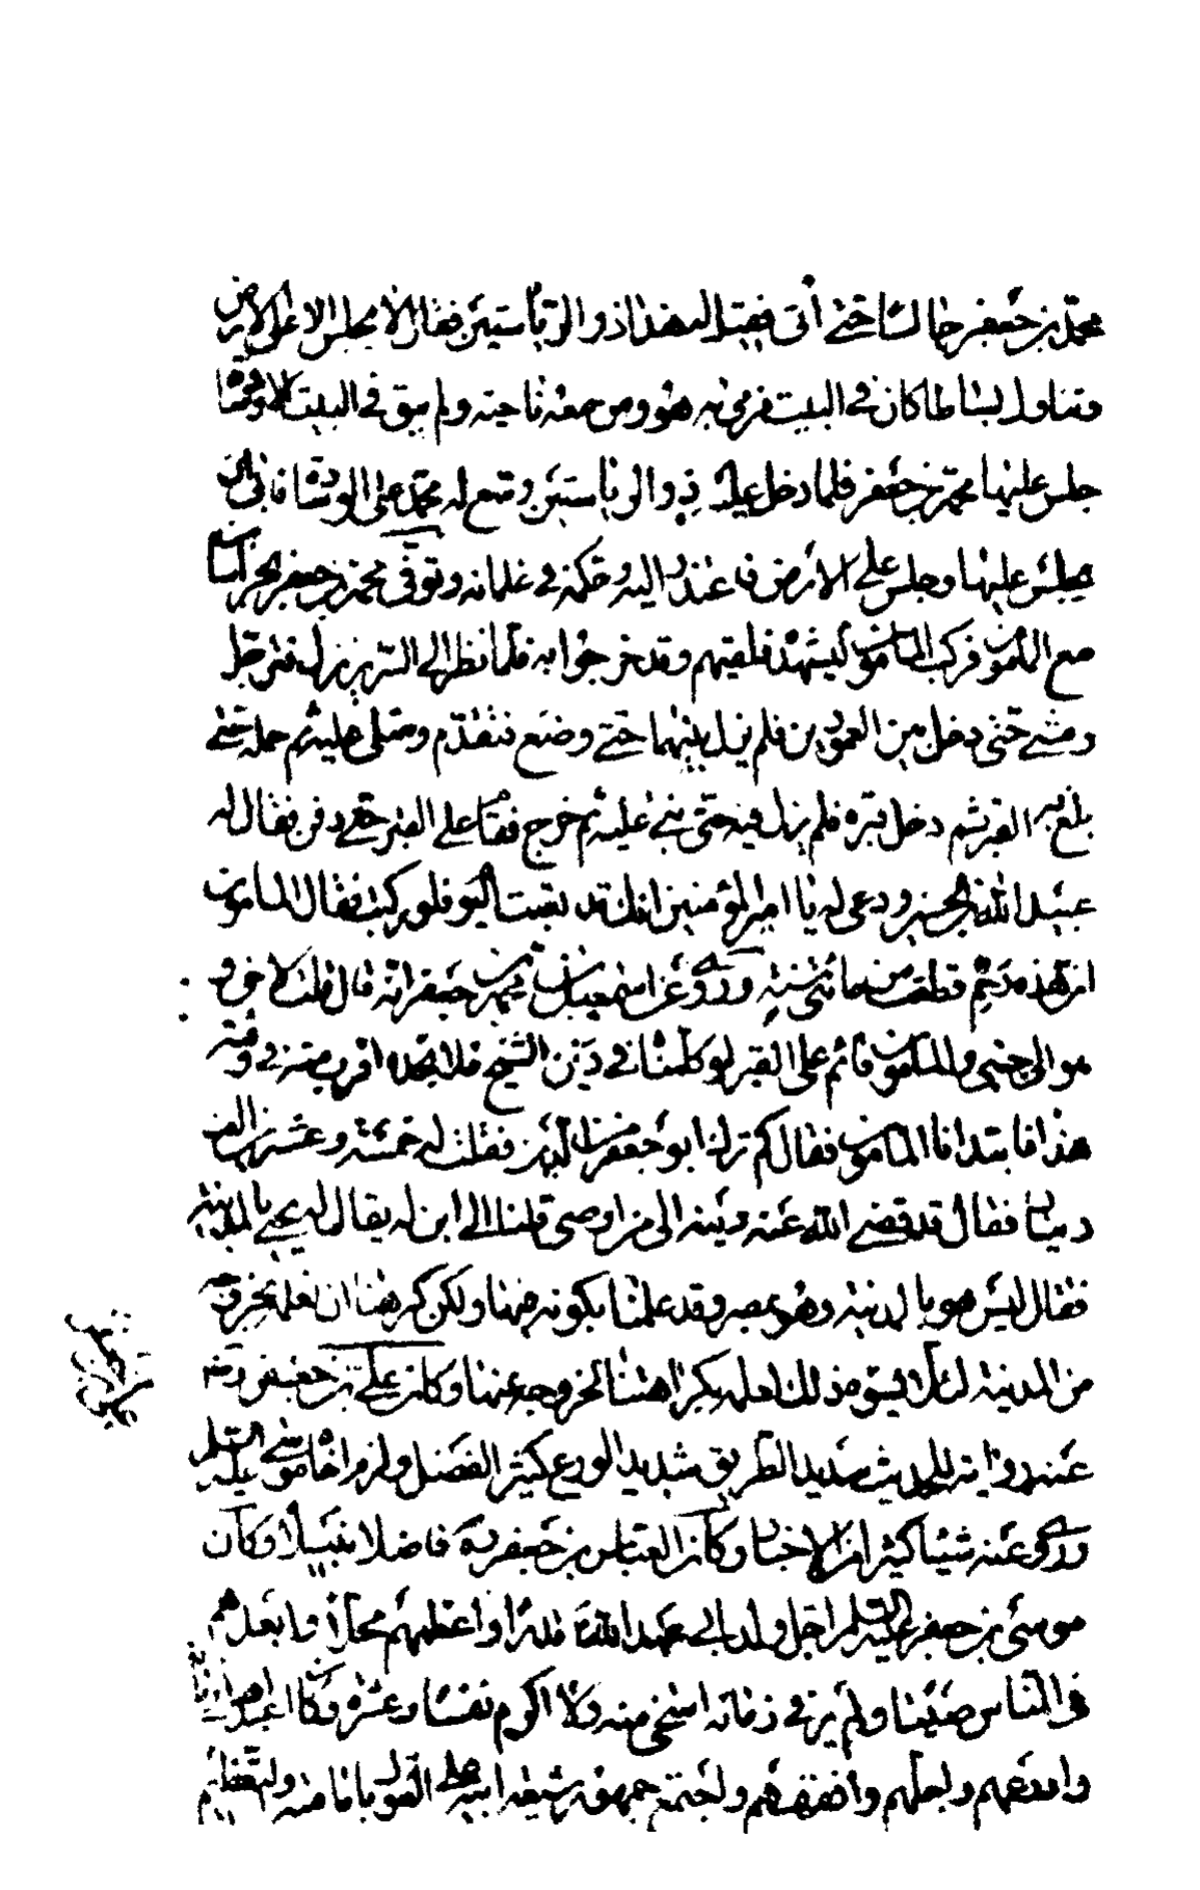 محمد بن جعفر جالسا حتى أتى فقيل له هذا ذو الرياستين فقال لا يجلس الا على الارض
وتناول بساطا كان في البيت فرمى به هو ومن معه ناحيته ولم يبق في البيت الا وسادة
جلس عليها محمد بن جعفر فلما دخل عليه ذو الرياستين وسع له محمد على الوسادة فابى ان
يجلس عليها وجلس على الارض فاعتذر اليه وحكمه في غلمانه وتوفى محمد بن جعفر بخراسان
مع المأمون فركب المأمون ليشهده فلقيهم وقد خرجوا به فلما نظر الى السرير نزل فترجل
ومشى حتى دخل بين العمودين فلم يزل بينهما حتى وضع فتقدم وصلى عليه ثم حمله حتى
بلغ به القبر ثم دخل قبره فلم يزل فيه حتى بنى عليه ثم خرج فقام على القبر حتى دفن فقال له
عبيد الله بن الحسين ودعى له يا امير المؤمنين انك قد تعبت اليوم فلو ركبت فقال المأمون
ان هذه رحم قطعت من مائتى سنة وروى عن اسمعيل بن محمد بن جعفر انه قال قلت لاخى وهو
الى جنبى والمأمون قائم على القبر لو كلمناه في دين الشيخ فلا نجده اقرب منه في وقته
هذا فابتدانا المأمون فقال كم ترك ابو جعفر من الدين فقلت له خمسة وعشرين الف
دينار فقال قد قضى الله عنه دينه الى من اوصى قلنا الى ابن له يقال له يحيى بالمدينة
فقال ليس هو بالمدينة وهو بمصر وقد علمنا بكونه فيها ولكن كرهنا ان نعلمه بخروجه
من المدينة لئلا يسؤه ذلك لعلمه بكراهتنا لخروجه عنها وكان على بن جعفر رضي الله
عنه راوية للحديث سديد الطريق شديد الورع كثير الفضل ولزم اخاه موسى عليه السلم
وروى عنه شيئا كثيرا من الاخبار وكان العباس بن جعفر ره فاضلا نبيلا وكان
موسى بن جعفر عليه السلم اجل ولد ابي عبد الله قدرا واعظمهم محلا وابعدهم
في الناس صيتا ولم ير في زمانه اسخى منه ولا اكرم نفسا وعشرة وكان اعبد اهل زمانه
واورعهم واجلهم وافقههم واجتمع جمهور شيعة ابيه على القول بامامته والتعظيم